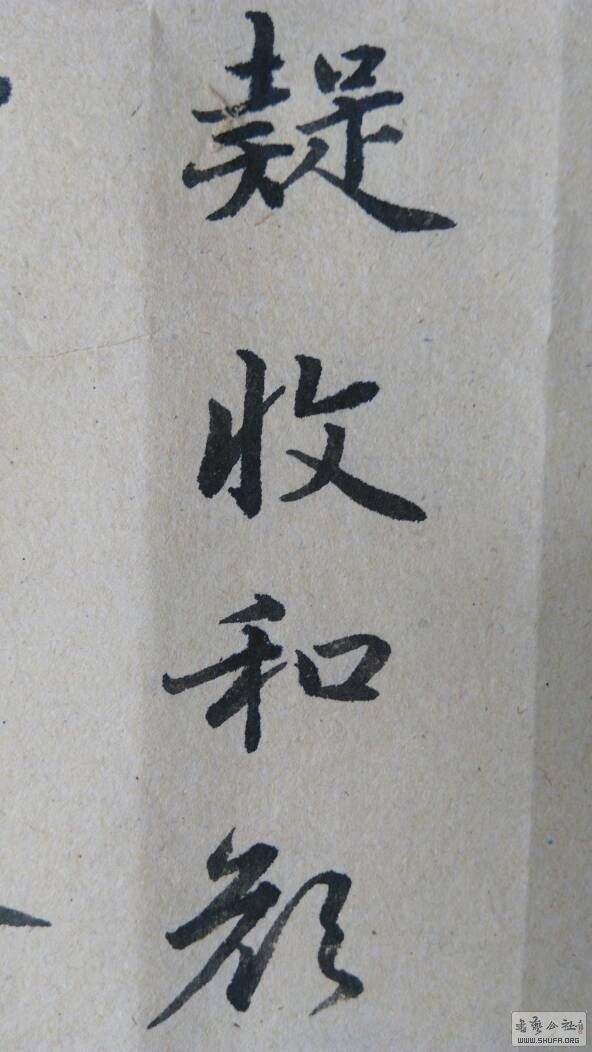 疑收和顏
書藝公社
WWW.SHUFA.ORG